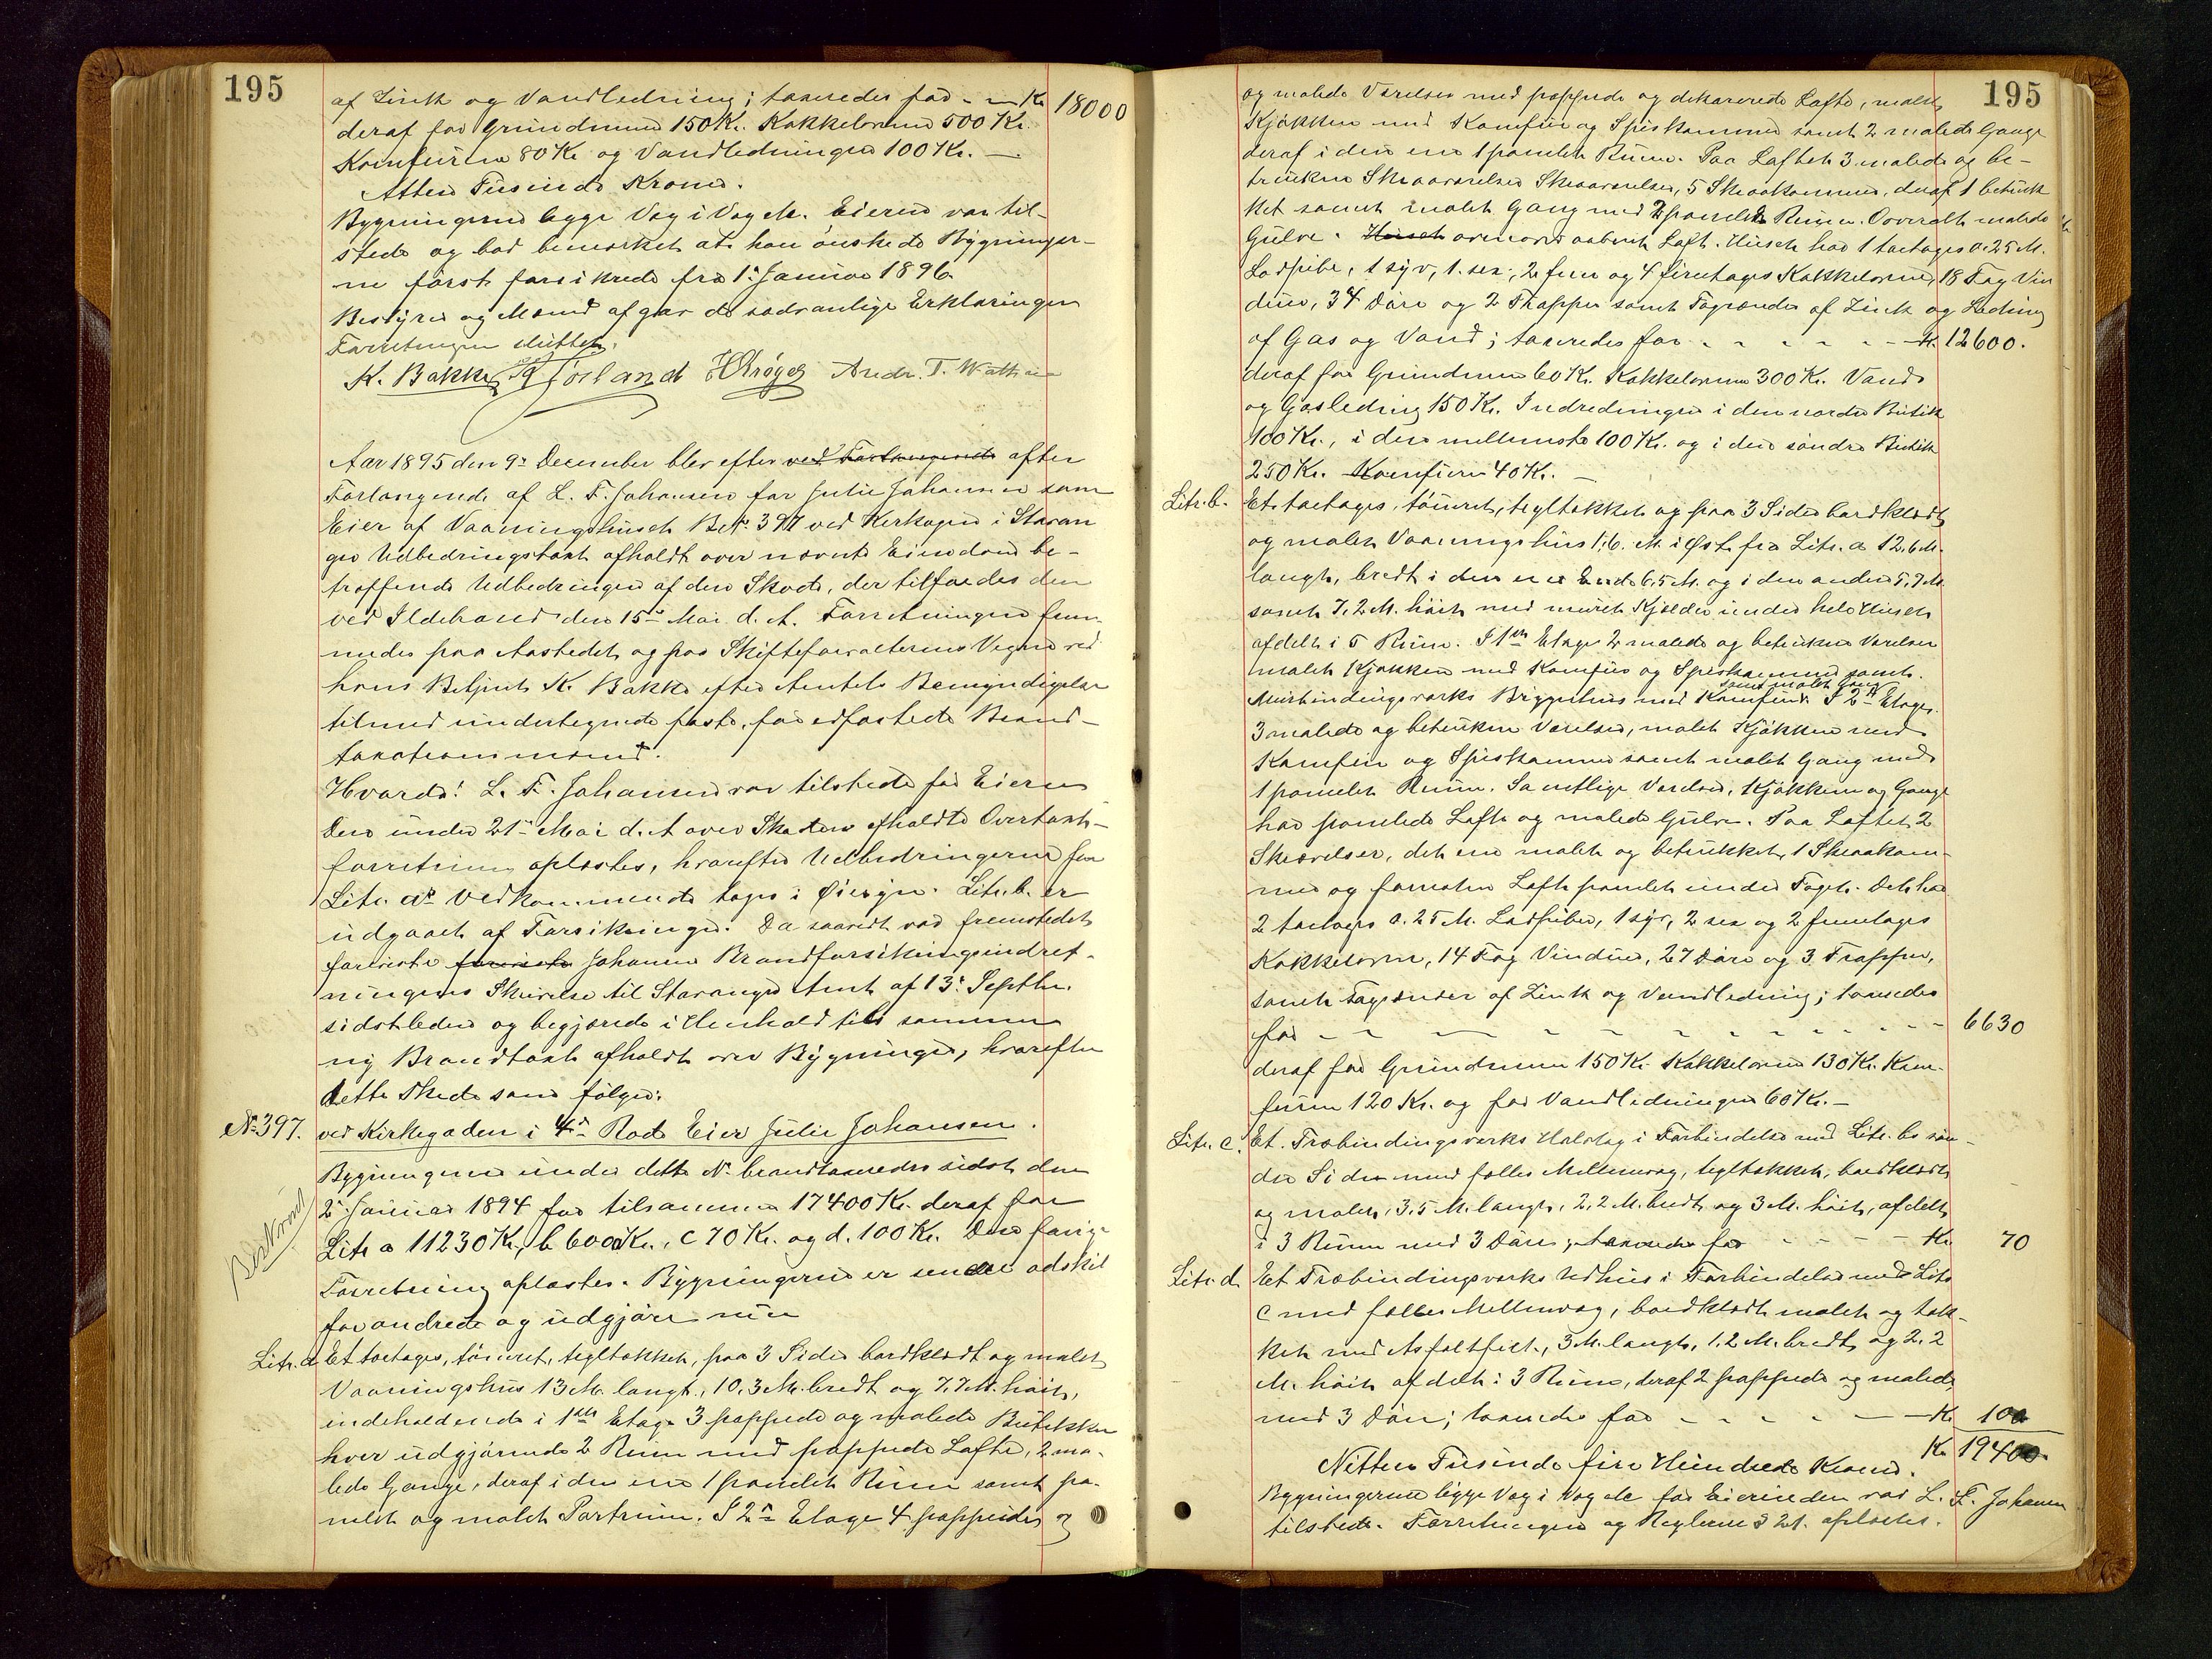 195
af Zink og Vandledning; taxeredes for - - Kr 18000
deraf for Grundmure 150 Kr. Kakkelovne 500 Kr.
Komfurene 80 Kr og Vandledningen 100 Kr. —
Atten Tusinde Kroner.
Bygningerne ligge Vag i Vag M. Eieren var til-
stede og bad bemærket at han ønskede Bygninger-
ne først forsikrede fra 1. Januar 1896.
Bestyrer og Mænd afgav de sedvanlige Erklæringer
Forretningen sluttet.
K. Bakke Torland Andr. T. Wathne
Aar 1895 den 9de December blev efter ved Forlangende efter
Forlangende af L. F. Johansen for Julie Johansen som
Eier af Vaaningshuset B.No. 397 ved Kirkegaden i Stavan
ger Udbedringstaxt afholdt over nævnte Eiendom be-
træffende Udbedringen af den Skade, der tilføiedes den
ved Ildebrand den 15de Mai d. A. Forretningen frem-
medes paa Aastedet og paa Skifteforvalterens Vegne ved
hans Betjent K. Bakke efter Amtets Bemyndigelse
tilmed undertegnede faste, for edfæstede Brand-
taxationsmænd.
Hvorda: L. F. Johansen var tilstede for Eieren
Den under 21de Mai d. A over Skaden afholdte Overtaxt-
forretning oplæstes, hvorefter Udbedringerne for
Litr. a's Vedkommende toges i Øiesyn. Litr. b. er
udgaaet af Forsikringen. Da saavidt var fremstedet
foreviste foreviste Johansen Brandforsikringsindret-
ningens Skrivelse til Stavanger Amt af 13de Septbr.
sidstleden og begjærede i Henhold til samme
ny Brandtaxt afholdt over Bygningen, hvorefter
dette skede som følger:
No 397. ved Kirkegaden i 4de Rode Eier Julie Johansen.
Bygningerne under dette No. brandtaxeredes sidst den
2den Januar 1894 for tilsammen 17400 Kr. deraf for
Litr a 11230 Kr, b 6000 Kr., c 70 Kr. og d. 100 Kr. Den forrige
Forretning oplæstes. Bygningerne er senere adskil
forandrede og udgjøre nu
Litr. a Et toetages, tømret, tegltækket, paa 3 Sider bordklædt og malet
Vaaningshus 13 M. langt, 10,3 M. bredt og 7,7 M. høit,
indeholdende i 1ste Etage 3 pappede og malede Butikker
hver udgjørende 2 Rum med pappede Lofte, 2 ma-
lede Gange, deraf i den ene 1 panelet Rum samt pa-
nelet og malet Portrum. I 2den Etage 4 pappede og
195
og malede Værelser med pappede og dekorerede Lofte, malet
Kjøkken med Komfur og Spiskammer samt 2 malede Gange
deraf i den ene 1 panelet Rum. Paa Loftet 3 malede og be-
trukne Skraaværelser Skraaværelser, 5 Skraakammer, deraf 1 betruk
ket samt malet Gang med 2 panelede Rum. Overalt malede
Gulve. Huset ovenover aabent Loft. Huset har 1 toetages a. 25 M.
Ladpibe, 1 syv, 1. sex, 2 fem og 4 firetages Kakkelovne, 18 Fag Vin
duer, 34 Døre og 2 Trapper samt Tagrender af Zink og Ledning
af Gas og Vand; taxeredes for - - - - - Kr. 12600.
deraf for Grundmure 60 Kr. Kakkelovne 300 Kr. Vand-
og Gasledning 150 Kr. Indredningen i den nordre Butik
100 Kr., i den mellemste 100 Kr. og i den søndre Butik
250 Kr. Komfuren 40 Kr. —
Litr. b. Et toetages, tømret, tegltækket og paa 3 Sider bordklædt
og malet Vaaningshus 1,6. M. i Øst fra Litr. a 12,6 M.
langt, bredt i den ene Ende 6,5 M. og i den anden 5,7 M.
samt 7,2 M. høit med muret Kjelder under hele Huset
afdelt i 5 Rum. I 1ste Etage 2 malede og betrukne Værelser
malet Kjøkken med Komfur og Spiskammer samt
samt malet Gang
Murbindingsværks Bryggerhus med Komfur. I 2den Etage.
3 malede og betrukne Værelser, malet Kjøkken med
Komfur og Spiskammer samt malet Gang med
1 panelet Rum. Samtlige Værelser, Kjøkkene og Gange
har panelede Lofte og malede Gulve. Paa Loftet 2
Skraaværelser, det ene malet og betrukket, 1 Skraakam-
mer og forresten Loft panelet under Taget. Det har
2 toetages a. 25 M. Ladpiber, 1 syv, 2 sex og 2 femetages
Kakkelovne, 14 Fag Vinduer, 27 Døre og 3. Trapper,
samt Tagrender af Zink og Vandledning; taxeredes
for - - - - - - - - 6630
deraf for Grundmure 150 Kr. Kakkelovne 130 Kr. Kom-
furene 120 Kr. og for Vandledningen 60 Kr. —
Litr. c. Et Træbindingsværks Halvtag i Forbindelse med Litr. bs søn-
dre Side med fælles Mellemvæg, tegltækket, bordklædt
og malet, 3,5 M. langt, 2,2 M. bredt og 3 M. høit, afdelt
i 3 Rum med 3 Døre; taxeredes for - - - - Kr. 70
Litr. d Et Træbindingsværks Udhus i Forbindelse med Litr
c med fælles Mellemvæg, bordklædt malet og tæk-
ket med Asfaltfilt, 3 M. langt, 1,2 M. bredt og 2,2
M. høit afdelt i 3 Rum, deraf 2 pappede og malede
med 3 Døre; taxeredes for - - - - - Kr. 100
Kr 19400
Nitten Tusinde fire Hundrede Kroner.
Bygningerne ligge Vag i Vag M for Eierinden var L. F. Johansen
tilstede. Forretningen og Reglerne § 21. oplæstes.